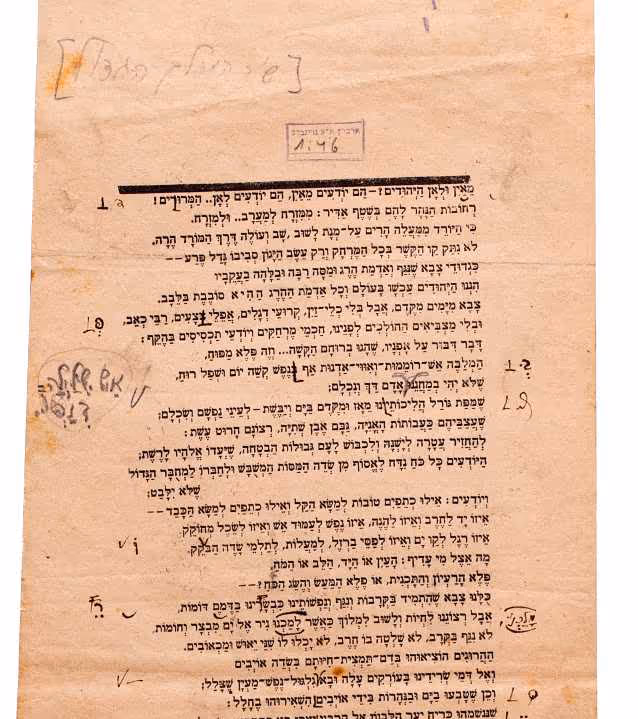 [שיר המהלך הגדול]
ארכיון א״צ גרינברג
1:46
מֵאַיִן וּלְאָן הַיְּהוּדִים? – הֵם יוֹדְעִים מֵאַיִן, הֵם יוֹדְעִים לְאָן.. הַמְּרוּדִים!
רְחוֹבוֹת הַנֵּכָר לָהֶם בְּשֶׁטֶף אַדִּיר: מִמִּזְרָח לְמַעֲרָב.. וּלְמִזְרָח.
כִּי הַיּוֹרֵד מִמַּעֲלֵה הָרִים עַל-מְנָת לָשׁוּב, שָׁב וְעוֹלֶה דֶּרֶךְ הַמּוֹרָד הָרָה.
לֹא נִתַּק קַו הַקֶּשֶׁר בְּכָל הַמֶּרְחָק וְרַק עֵשֶׂב הַיָּגוֹן סְבִיבוֹ גָּדַל פֶּרַע––
כִּגְדוּדֵי צָבָא שֶׁנִּגַּף וְאַדְמַת הֶרֶג וּמַסָּה רַבָּה וּבַלָּהָה בַּעֲקֵבָיו
הִנְנוּ הַיְּהוּדִים עַכְשָׁו בָּעוֹלָם וְכָל אַדְמַת הַהֶרֶג הַהִיא סוֹבֶבֶת בַּלֵּבָב.
צָבָא מִיָּמִים מִקֶּדֶם, אֲבָל בְּלִי כְּלֵי-זַיִן, קְרוּעֵי דְגָלִים, אֲפֵלֵי פְּצָעִים, רַבֵּי כְּאֵב,
וּבְלִי מַצְבִּיאִים הַהוֹלְכִים לְפָנֵינוּ, חַכְמֵי מֶרְחַקִּים וְיוֹדְעֵי תַכְסִיסִים בְּהֶקֵּף:
דָּבָר דִּבּוּר עַל אָפְנָיו, שֶׁהָגוּ בְּרוּחָם הַקָּשָׁה... וְזֶה פֶּלֶא מִפּוּחַ,
הַמְלַבֶּה אֵשׁ-רוֹמְמוּת-וְאִוּוּי-אַדְנוּת אַף בְּנֶפֶשׁ קְשֵׁה יוֹם וּשְׁפַל רוּחַ,
שֶׁלֹּא יְהִי בְּמַחֲנֵנוּ אָדָם דַּךְ וְנִכְלָם;
שֶׁמַּפַּת גּוֹרַל הֲלִיכוֹתֵינוּ מֵאָז וּמִקֶּדֶם בַּיָּם וּבַיַּבֶּשֶׁת – לְעֵינֵי נַפְשָׁם וְשִׂכְלָם;
שֶׁעֲצַבֵּיהֶם כַּעֲבוֹתוֹת הָאֳנִיָּה, גַּבָּם אֶבֶן שְׁתִיָּה, רְצוֹנָם חָרוּט עֶשֶׁת:
לְהַחֲזִיר עֲטָרָה לְיָשְׁנָהּ וְלִכְבּוֹשׁ לָעָם גְּבוּלוֹת הַבְטָחָה, שֶׁיְּעָדוֹ אֱלֹהָיו לָרֶשֶׁת;
הַיּוֹדְעִים כָּל כֹּחַ נִדָּח לֶאֱסוֹף מִן שְׂדֵה הַמַּסּוֹת הַמְשֻׁבָּשׁ וּלְחַבְּרוֹ לַמְחֻבָּר הַגָּדוֹל
שֶׁלֹּא יִלָּבֵט;
וְיוֹדְעִים: אֵילוּ כְתֵפַיִם טוֹבוֹת לְמַשָּׂא הַקַּל וְאֵילוּ כְתֵפַיִם לְמַשָּׂא הַכָּבֵד––
אֵיזוֹ יָד לַחֶרֶב וְאֵיזוֹ לַהֶגֶה, אֵיזוֹ נֶפֶשׁ לְעַמּוּד אֵשׁ וְאֵיזוֹ לְשֵׂכֶל מְחוֹקֵק.
אֵיזוֹ רֶגֶל לְקַו יָם וְאֵיזוֹ לְפַסֵּי בַרְזֶל, לְמַעֲלוֹת, לְתַלְמֵי שָׂדֶה הַבּוֹקֵק.
מָה אֵצֶל מִי עָדִיף: הָעַיִן אוֹ הַיָּד, הַלֵּב אוֹ הַמֹּחַ,
פֶּלֶא הָרַעְיוֹן וְהַתָּכְנִית, אוֹ פֶּלֶא הַמַּעַשׂ וְהֶשֵּׂג הַכֹּחַ?––
כֻּלָּנוּ צָבָא שֶׁהִתְמִיד בִּקְרָבוֹת וְנִגַּף וְנַפְשׁוֹתֵינוּ כִּבְשָׂרֵינוּ בְּדָמָם דּוֹמוֹת,
אֲבָל רְצוֹנֵנוּ לִחְיוֹת וְלָשׁוּב לִמְלוֹךְ כַּאֲשֶׁר לְמַלְכֵּנוּ נִיר אֶל יָם מִבְצָר וְחוֹמוֹת.
לֹא נִגַּף בַּקְּרָב, לֹא שָׁלְטָה בוֹ חֶרֶב, לֹא יָכְלוּ לוֹ שִׁנֵּי יֵאוּשׁ וּמַכְאוֹבִים.
הַהֲרוּגִים הוֹצִיאוּהוּ בְּדַם-תַּמְצִית-חִיּוּתָם בִּשְׂדֵה אוֹיְבִים
וְאֶל דְּמֵי שְׂרִידֵינוּ בָּעוֹרְקִים עָלָה וּבָא גִלְגּוּל-נֶפֶשׁ-מֵעַיִן שֶׁצָּלַל;
וְכֵן שֶׁטָּבְעוּ בַיָּם וּבַנְּהָרוֹת בִּידֵי אוֹיְבִים הִשְׁאִירוּהוּ בֶּחָלָל: